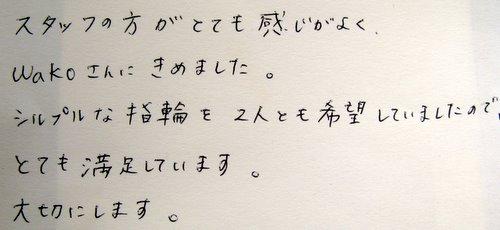 スタッフの方がとても感じがよく、
wakoさんにきめました。
シルプルな指輪を2人とも希望していましたので、
とても満足しています。
大切にします。